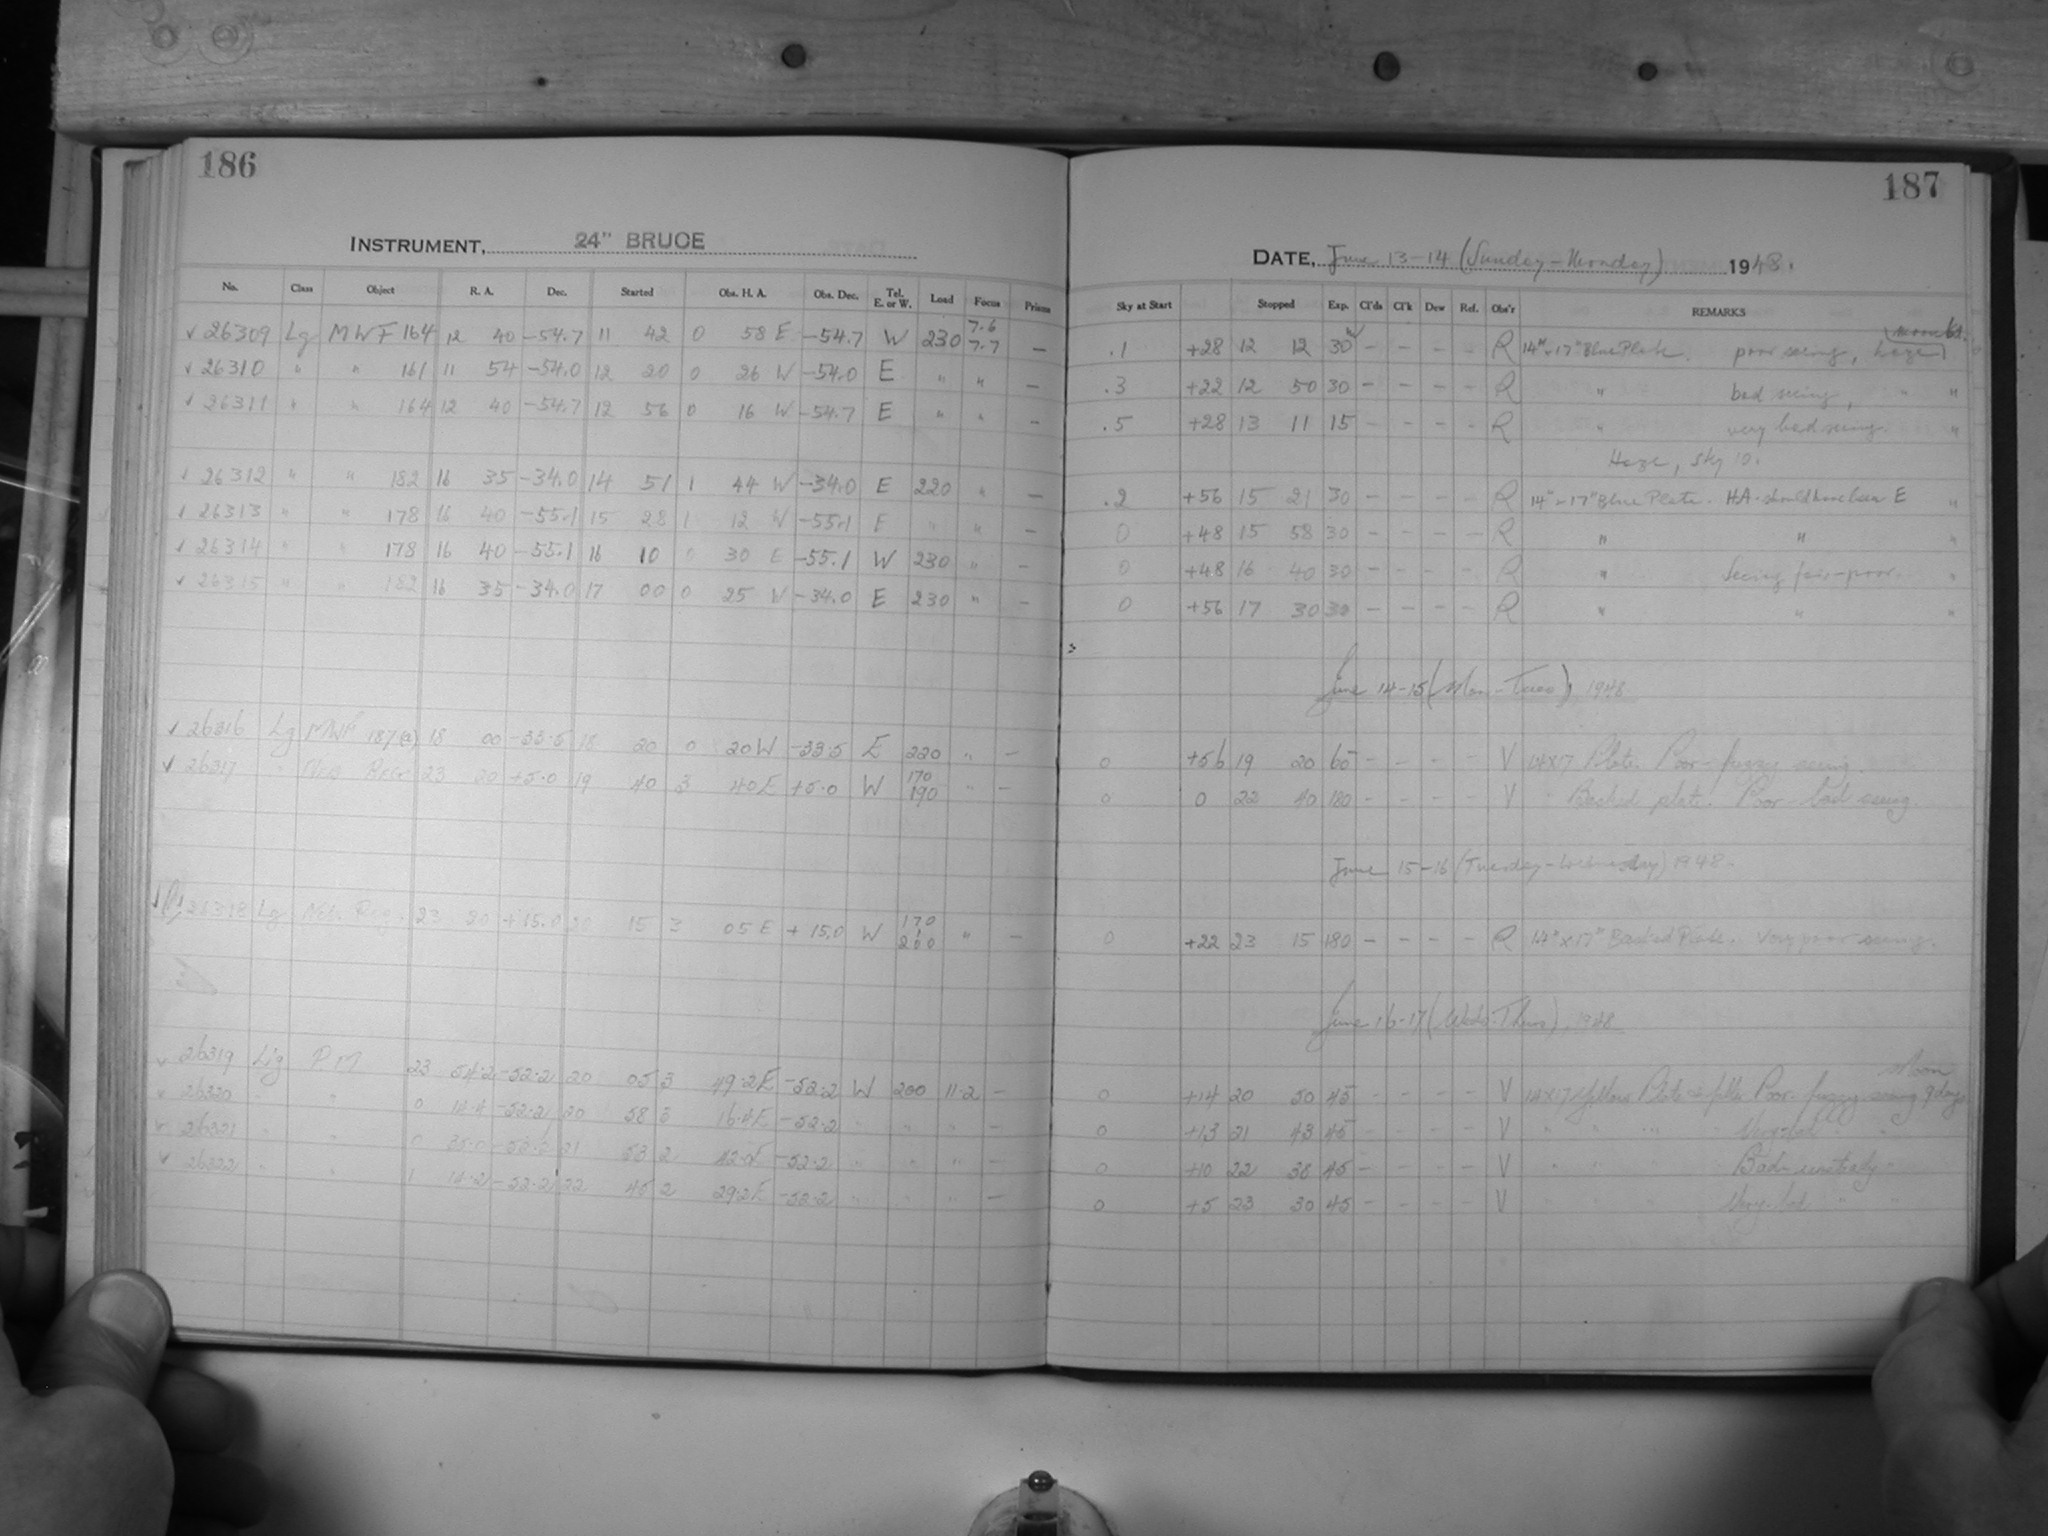 186
INSTRUMENT, 24" BRUCE
No. Class Object R. A. Dec. Started Obs. H. A. Obs. Dec. Tel. E. or W. Load Focus Prisms
√ 26309 Lg MWF 164 12 40 -54.7 11 42 0 58 E -54.7 W 230 7.6 7.7 —
√ 26310 " " 161 11 54 -54.0 12 20 0 26 W -54.0 E " " —
√ 26311 " " 164 12 40 -54.7 12 56 0 16 W -54.7 E " " —
√ 26312 " " 182 16 35 -34.0 14 51 1 44 W -34.0 E 220 " —
√ 26313 " " 178 16 40 -55.1 15 28 1 12 W -55.1 E " " —
√ 26314 " " 178 16 40 -55.1 16 10 0 30 E -55.1 W 230 " —
√ 26315 " " 182 16 35 -34.0 17 00 0 25 W -34.0 E 230 " —
√ 26316 Lg MWF 187(a) 18 00 -33.5 18 20 0 20 W -33.5 E 220 " —
√ 26317 " 23 20 +5.0 19 40 3 40 E +5.0 W 170 190 " —
26318 Lg Neb. Reg. 23 20 +15.0 20 15 3 05 E +15.0 W 170 200 " —
√ 26319 Lig P M 23 54.2 -52.2 20 05 3 49.2 E -52.2 W 200 11.2 —
√ 26320 " " 0 14.4 -52.2 20 58 3 16.4 E -52.2 " " " —
√ 26321 " " 0 35.0 -52.2 21 53 2 42.0 E -52.2 " " " —
√ 26322 " " 1 14.2 -52.2 22 45 2 29.2 E -52.2 " " " —
187
DATE, June 13-14 (Sunday-Monday) 1948.
Sky at Start Stopped Exp. Cl'ds Cl'k Dew Ref. Obs'r REMARKS
.1 +28 12 12 30 - - - - R 14" x 17" Blue Plate. poor seeing, haze
.3 +22 12 50 30 - - - - R " bad seeing, " "
.5 +28 13 11 15 - - - - R " very bad seeing. "
Haze, sky 10.
.2 +56 15 21 30 - - - - R 14" x 17" Blue Plate. H.A. should have been E "
0 +48 15 58 30 - - - - R " " "
0 +48 16 40 30 - - - - R " Seeing fair-poor. "
0 +56 17 30 30 - - - - R " " "
June 14-15 (Mon-Tues), 1948
0 +56 19 20 60 - - - - V 14x17 Plate. Poor-fuzzy seeing.
0 0 22 40 180 - - - - V " Backed plate. Poor-bad seeing.
June 15-16 (Tuesday-Wednesday) 1948.
0 +22 23 15 180 - - - - R 14" x 17" Backed Plate. Very poor seeing.
June 16-17 (Weds-Thurs), 1948
Moon
0 +14 20 50 45 - - - - V 14x17 Yellow Plate & filter Poor-fuzzy seeing 9 days
0 +13 21 43 45 - - - - V " " " Very bad "
0 +10 22 38 45 - - - - V " " " Bad-unsteady "
0 +5 23 30 45 - - - - V " " " Very bad " "